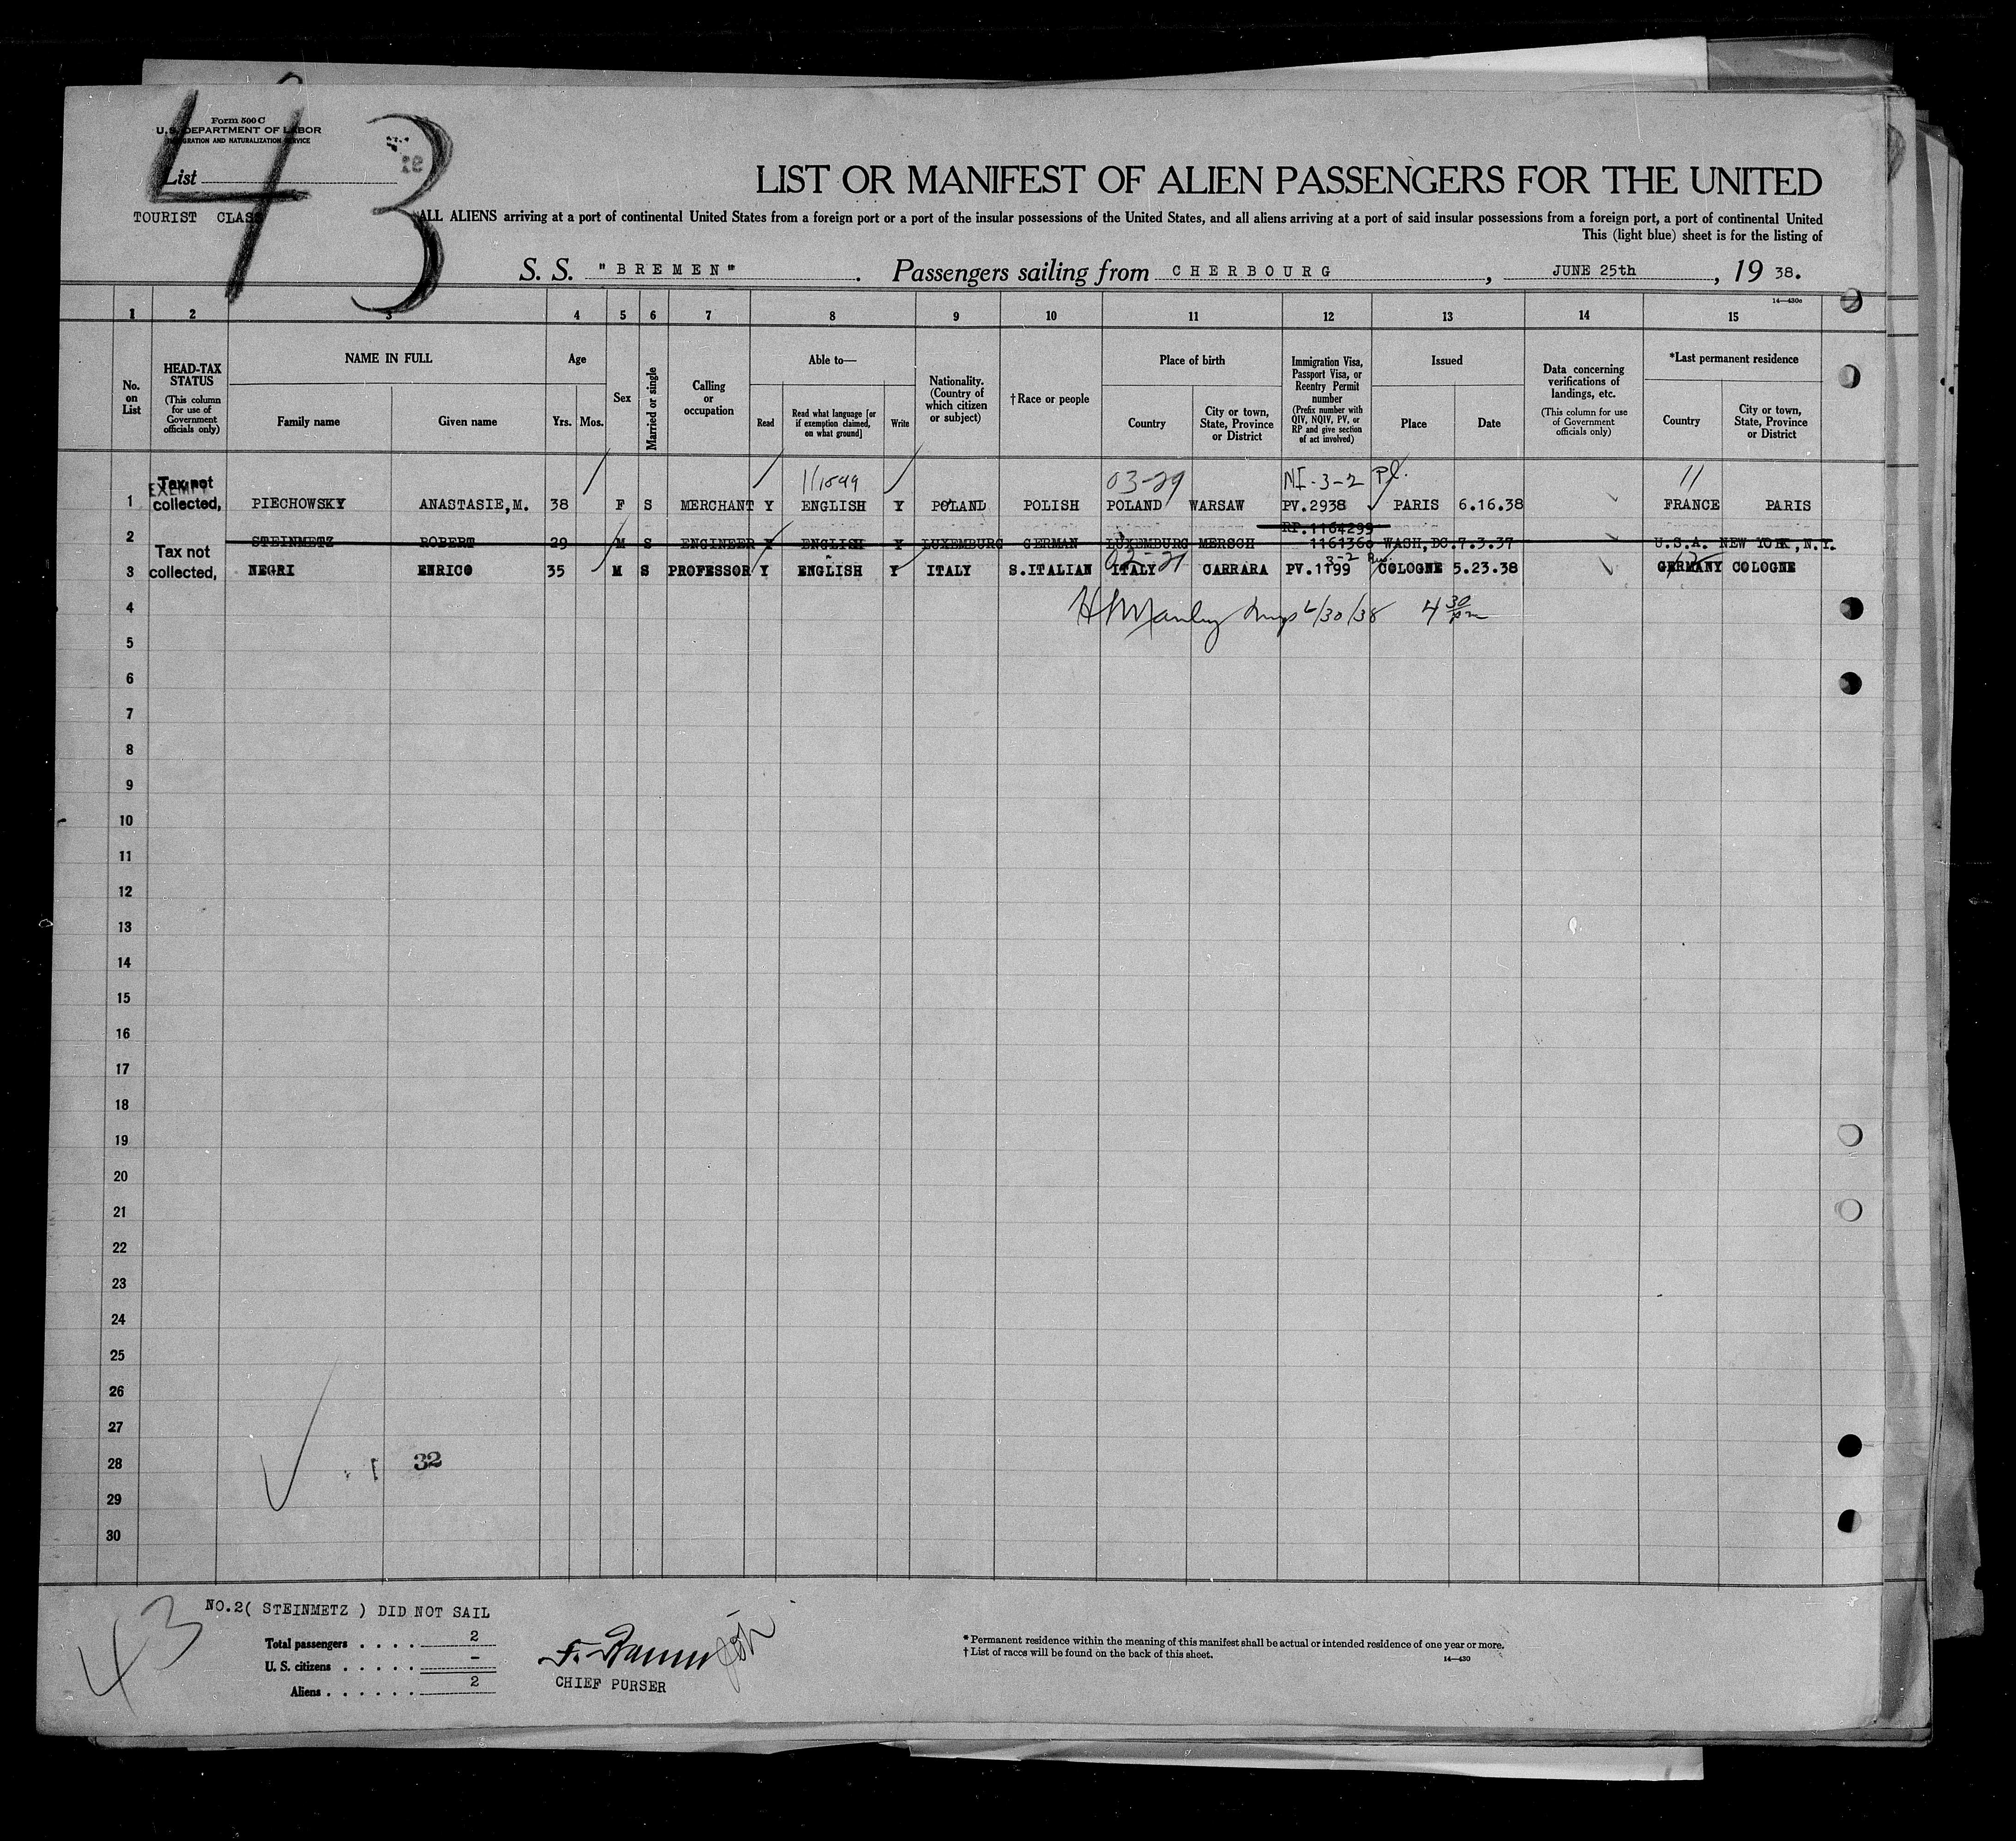 43
Form 500 C
U. S. DEPARTMENT OF LABOR
IMMIGRATION AND NATURALIZATION SERVICE
List
TOURIST CLASS
LIST OR MANIFEST OF ALIEN PASSENGERS FOR THE UNITED
ALL ALIENS arriving at a port of continental United States from a foreign port or a port of the insular possessions of the United States, and all aliens arriving at a port of said insular possessions from a foreign port, a port of continental United
This (light blue) sheet is for the listing of
S. S. "BREMEN". Passengers sailing from CHERBOURG, JUNE 25th, 19 38.
14—430c
1 2 3 4 5 6 7 8 9 10 11 12 13 14 15
No. on List
HEAD-TAX STATUS (This column for use of Government officials only)
NAME IN FULL Family name Given name
Age Yrs. Mos.
Sex
Married or single
Calling or occupation
Able to— Read Read what language [or if exemption claimed, on what ground] Write
Nationality. (Country of which citizen or subject)
†Race or people
Place of birth Country City or town, State, Province or District
Immigration Visa, Passport Visa, or Reentry Permit number (Prefix number with QIV, NQIV, PV, or RP and give section of act involved)
Issued Place Date
Data concerning verifications of landings, etc. (This column for use of Government officials only)
*Last permanent residence Country City or town, State, Province or District
Tax not EXEMPT 03-29 NI-3-2 11
1 collected, PIECHOWSKY ANASTASIE,M. 38 F S MERCHANT Y ENGLISH Y POLAND POLISH POLAND WARSAW PV.2938 PARIS 6.16.38 FRANCE PARIS
RP.1164299
2 STEINMETZ ROBERT 29 M S ENGINEER Y ENGLISH Y LUXEMBURG GERMAN LUXEMBURG MERSCH 1161360 WASH,DC.7.3.37 U.S.A. NEW YORK,N.Y.
Tax not 3-2
3 collected, NEGRI ENRICO 35 M S PROFESSOR Y ENGLISH Y ITALY S.ITALIAN ITALY CARRARA PV.1199 COLOGNE 5.23.38 GERMANY COLOGNE
4 30 pm
4
5
6
7
8
9
10
11
12
13
14
15
16
17
18
19
20
21
22
23
24
25
26
27
28 32
29
30
43
NO.2( STEINMETZ ) DID NOT SAIL
Total passengers . . . . 2
U. S. citizens . . . . . -
Aliens . . . . . . 2
CHIEF PURSER
* Permanent residence within the meaning of this manifest shall be actual or intended residence of one year or more.
† List of races will be found on the back of this sheet.
14—430